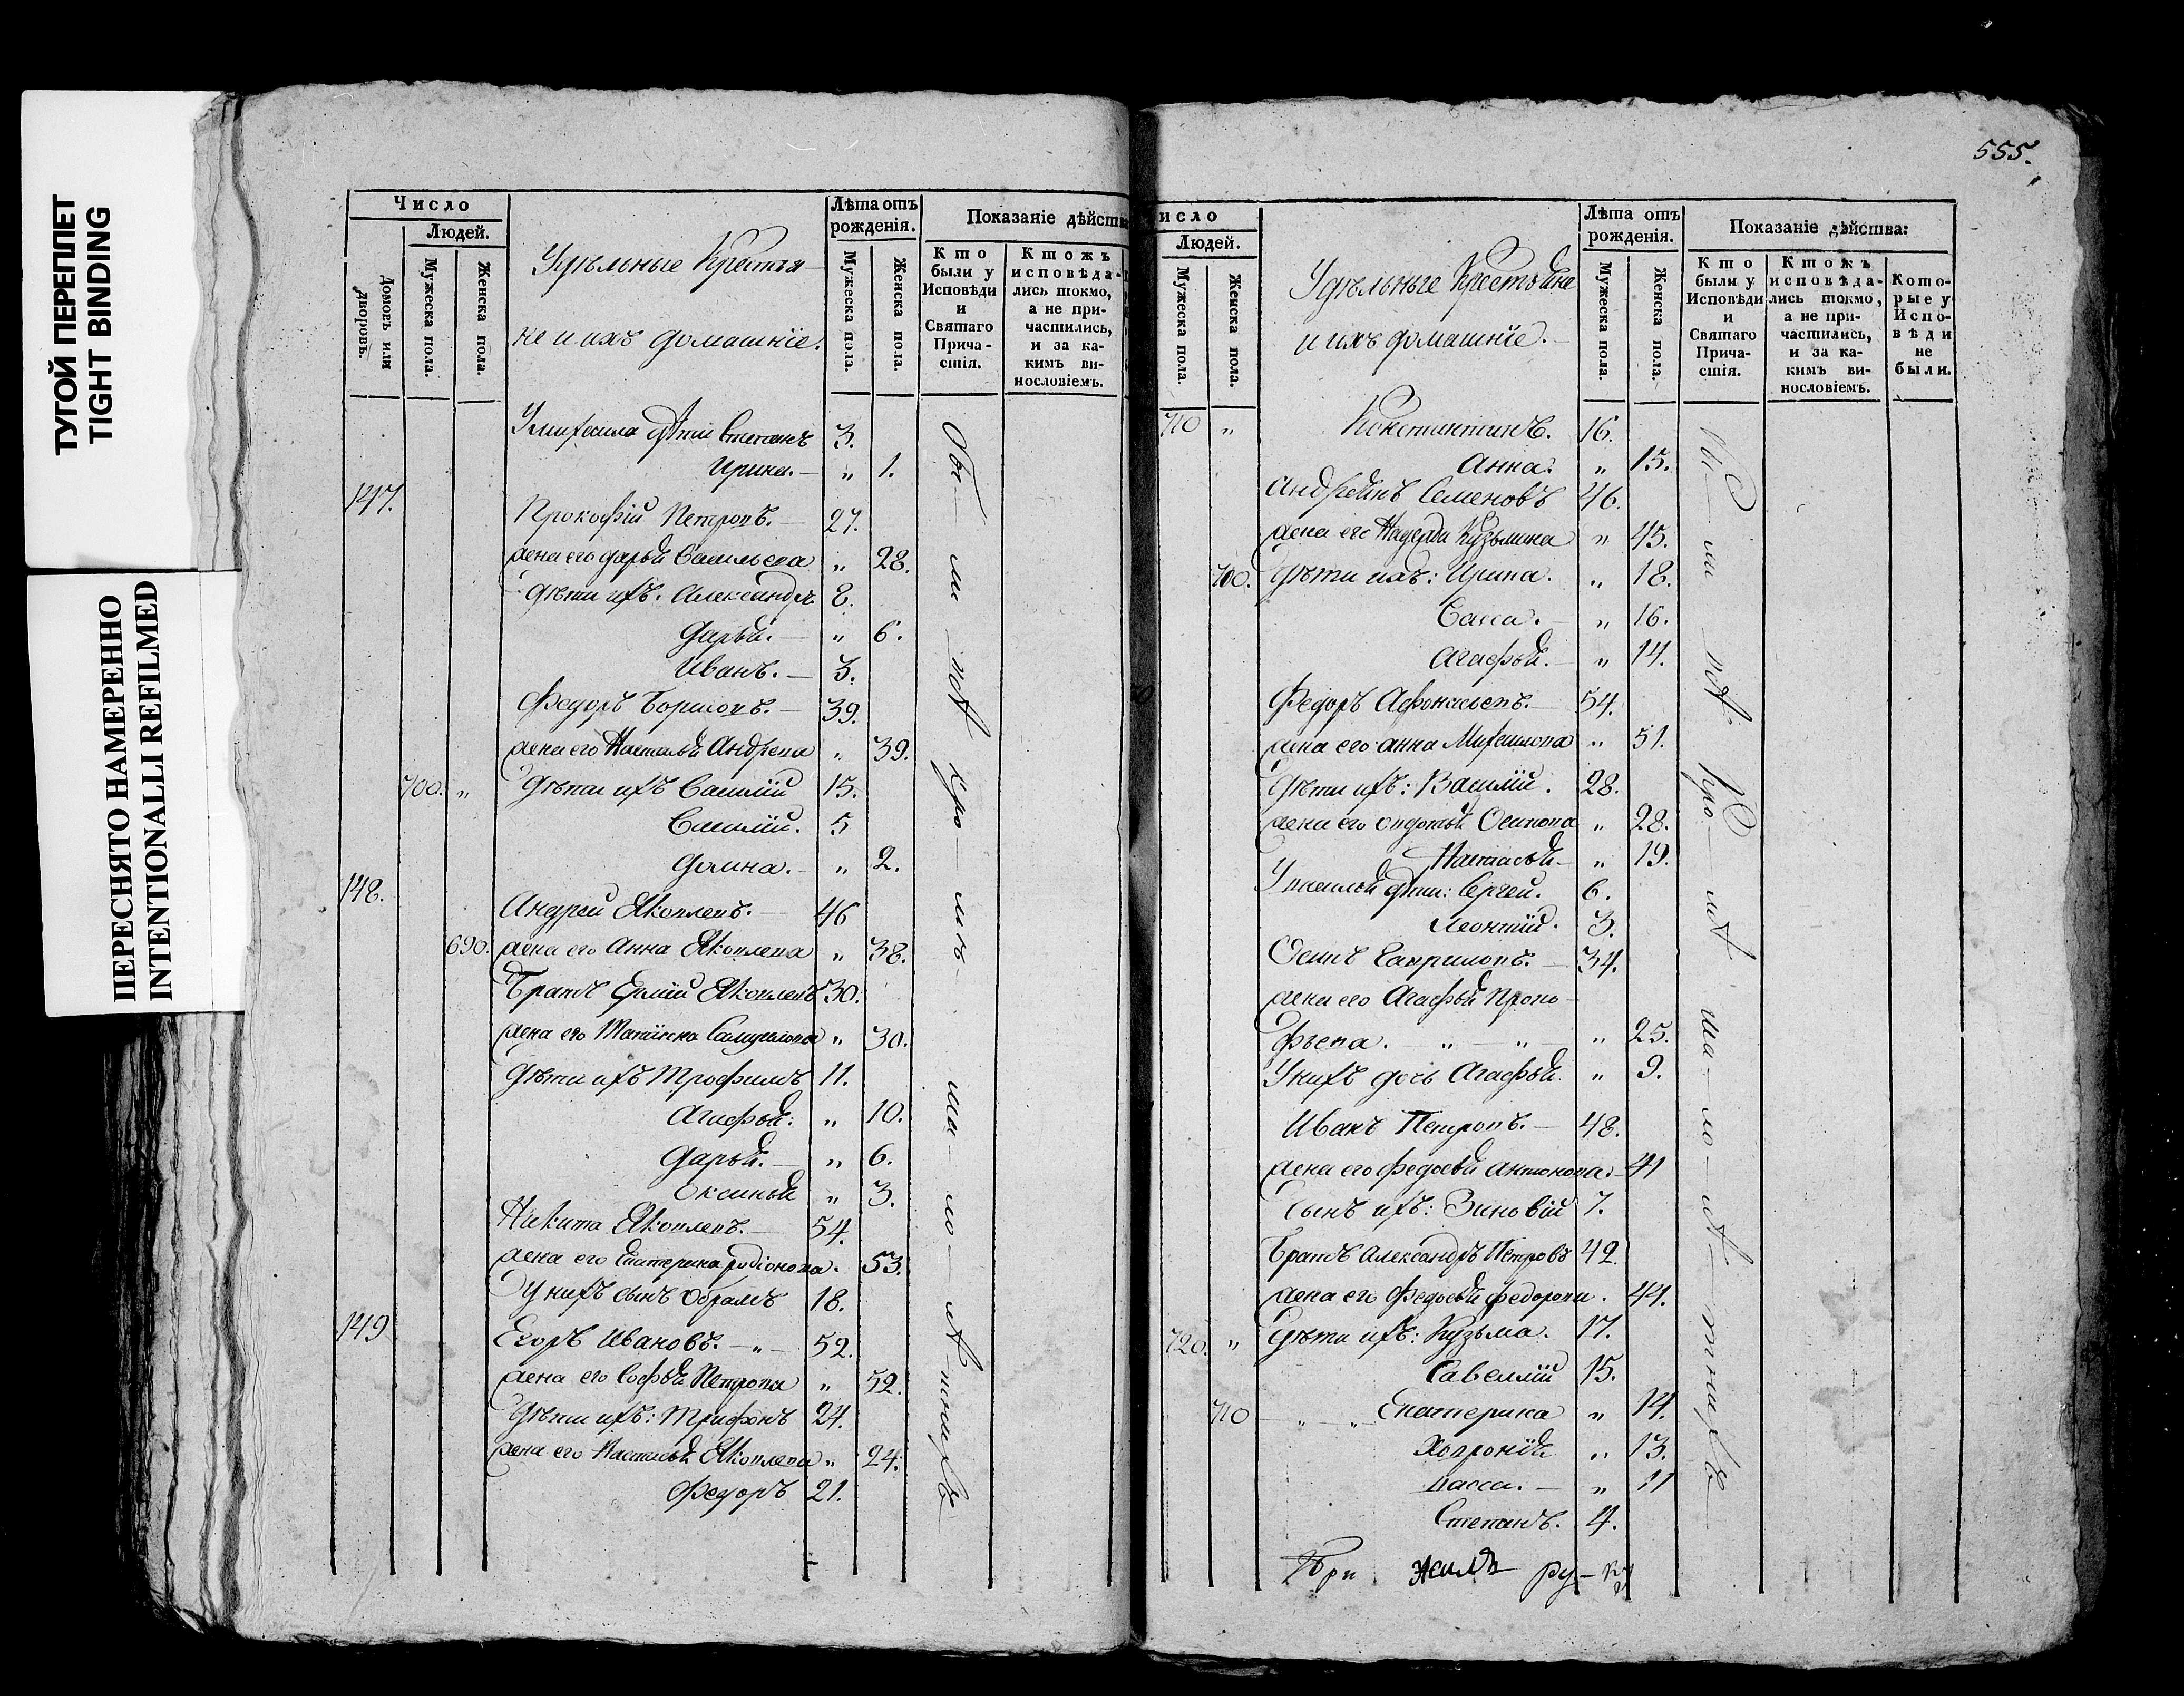 ТУГОЙ ПЕРЕПЛЕТ
TIGHT BINDING
ПЕРЕСНЯТО НАМЕРЕННО
INTENTIONALLI REFILMED
Число
Людей.
Домовъ или дворовъ.
Мужеска пола.
Женска пола.
Удѣльные Крестья-
не и ихъ домашніе.
Лѣта отъ рожденія.
Мужеска пола.
Женска пола.
Показаніе дѣйства
Кто были у Исповѣди и Святаго Прича-стія.
Ктожъ исповѣда-лись токмо, а не при-частились, и за ка-кимъ ви-нословіемъ.
У михаила дѣти Степанъ 3.
Ирина. — „ 1.
147.
Прокофій Петровъ. — 27.
жена его дарья Васильева „ 28.
Дѣти ихъ. Александръ 8.
Дарья. — „ 6.
Иванъ. — 3.
Федоръ Борисовъ. — 39.
жена его Настасья Андреева „ 39.
700. „ Дѣти ихъ Василій 15.
Василій. 5
Домна. — „ 2.
148.
Андрей Яковлевъ. — 46
690. жена его Анна Яковлева „ 38.
Братъ Ермій Яковлевъ 30.
жена его Татіяна Самуилова „ 30.
Дѣти ихъ Трофимъ 11.
Агафья: „ 10.
Дарья. — „ 6.
Оксинья „ 3.
Никита Яковлевъ. — 54.
жена его Екатерина родіонова. 53.
У нихъ сынъ Обрамъ 18.
149
Егоръ Ивановъ. — „ — 52.
жена его Софья Петрова „ 52.
Дѣти ихъ: Трифонъ 24.
жена его Настасья Яковлева „ 24.
Федоръ 21.
555.
исло
Людей.
Мужеска пола.
Женска пола.
Удѣльные Крестьяне
и ихъ домашніе. —
Лѣта отъ рожденія.
Мужеска пола.
Женска пола.
Показаніе дѣйства:
Кто были у Исповѣди и Святаго Прича-стія.
Ктожъ исповѣда-лись токмо, а не при-частились, и за ка-кимъ ви-нословіемъ.
Кото-рые у Испо-вѣди не были.
710 „ Константинъ. 16.
Анна. „ 15.
Андреянъ Семеновъ 46.
жена его Надежда Кузьмина „ 45.
700. Дѣти ихъ: Ирина. „ 18.
Васса. — „ 16.
Агафья. — „ 14.
Федоръ Афонасьевъ. — 54.
жена его анна Михаилова „ 51.
Дѣти ихъ: Василій. 28.
жена его Овдотья Осипова „ 28.
Настасья — „ 19.
У василья дѣти: Сергей. 6.
Леонтій. 3.
Осипъ Гавриловъ. — 34.
жена его Агафья Проко-
фьева. — „ — „ — „ 25.
У нихъ дочь Агафья. „ 9.
Иванъ Петровъ. — 48.
жена его федосья антонова. — 41
Сынъ ихъ: Зиновій 7.
Братъ Александръ Петровъ 42.
жена его Федосья федорова. 44.
720. „ Дѣти ихъ: Кузьма. 17.
Савеллій 15.
710 „ „ Екатерина „ 14.
Хавронія „ 13.
Васса. — „ 11
Степанъ. 4.